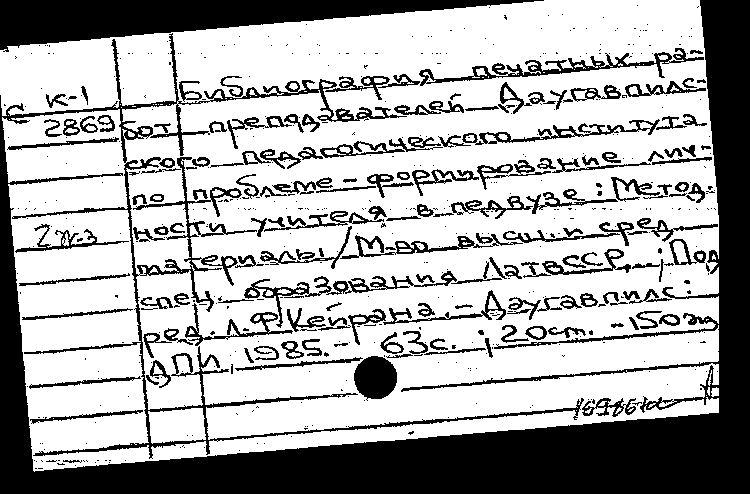 Библиография печатных ра-
С К-1
2869 бот преподавателей Даугавпилс-
ского педагогического института
по проблеме - формирование лич-
2 экз ности учителя в педвузе : Метод.
материалы / М-во высш. и сред.
спец. образования ЛатвССР, ; Под
ред. Л.Ф. Кейрана. - Даугавпилс :
ДПИ, 1985. - 63с. ; 20см. - 150 экз